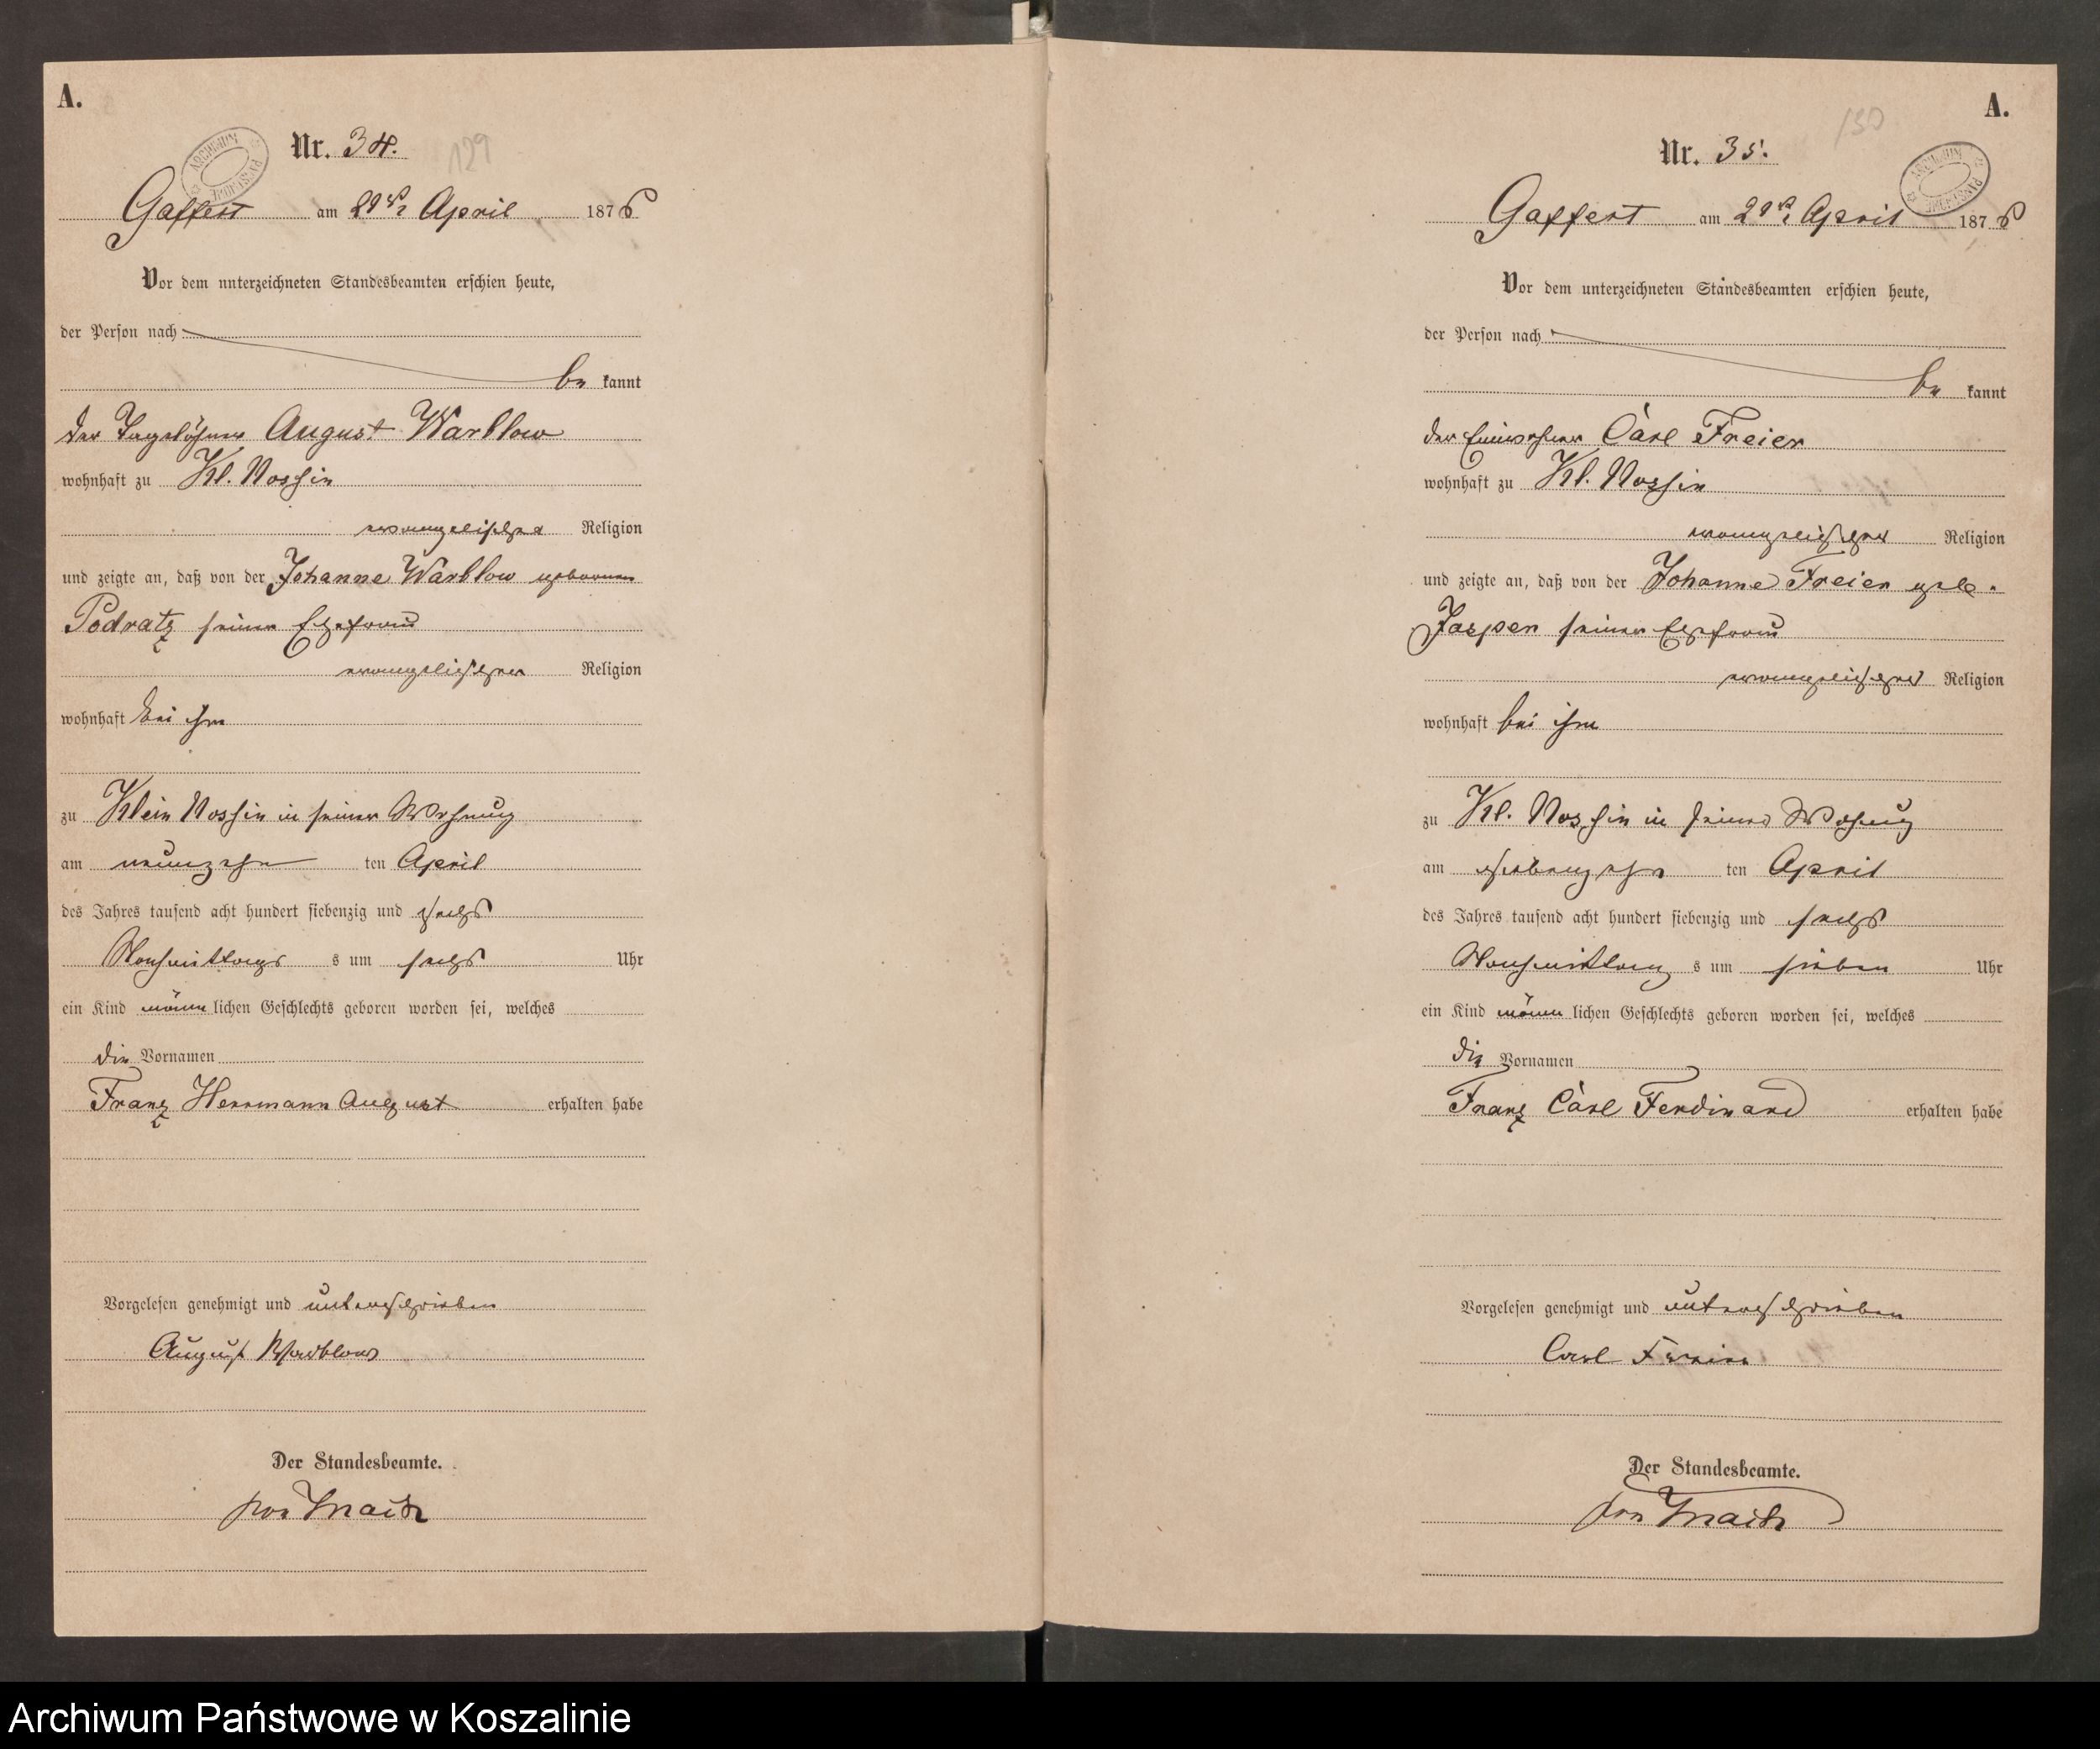 A.
Nr. 34.
129
Gaffert am 21ten April 1876
Vor dem unterzeichneten Standesbeamten erschien heute,
der Person nach
be kannt
der Tagelöhner August Warblow
wohnhaft zu Kl. Nossin
evangelischer Religion
und zeigte an, daß von der Johanne Warblow geborenen
Podratz seiner Ehefrau
evangelischer Religion
wohnhaft bei ihm
zu Klein Nossin in seiner Wohnung
am neunzehn ten April
des Jahres tausend acht hundert siebenzig und sechs
Nachmittags s um sechs Uhr
ein Kind männ lichen Geschlechts geboren worden sei, welches
die Vornamen
Franz Herrmann August erhalten habe
Vorgelesen genehmigt und unterschrieben
August Warblow
Der Standesbeamte.
von
A.
130
Nr. 35.
Gaffert am 21ten April 1876
Vor dem unterzeichneten Standesbeamten erschien heute,
der Person nach
be kannt
der Einwohner Carl Freier
wohnhaft zu Kl. Nossin
evangelischer Religion
und zeigte an, daß von der Johanne Freier geb.
Jasper seiner Ehefrau
evangelischer Religion
wohnhaft bei ihm
zu Kl. Nossin in seiner Wohnung
am siebenzehn ten April
des Jahres tausend acht hundert siebenzig und sechs
Nachmittag s um sieben Uhr
ein Kind männ lichen Geschlechts geboren worden sei, welches
die Vornamen
Franz Carl Ferdinand erhalten habe
Vorgelesen genehmigt und unterschrieben
Carl Freier
Der Standesbeamte.
von
Archiwum Państwowe w Koszalinie